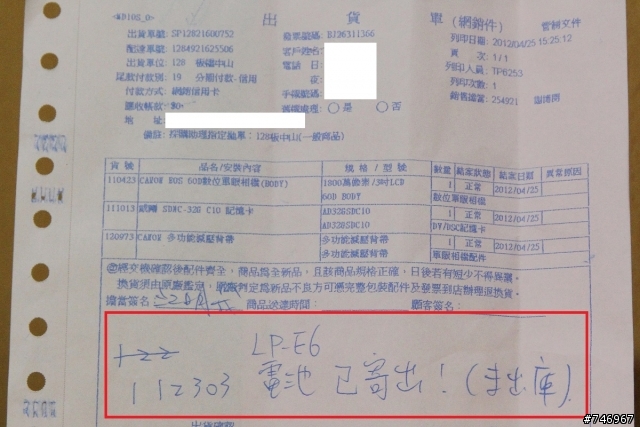 <WB10S_0> 出 貨 單(網銷件) 管制文件
出貨單號: SP12821600752 發票號碼: BJ96311366 列印日期: 2012/04/25 15:25:12
配達單號: 1264921625506 客戶姓名: 頁 次: 1/1
出貨單位: 128 板橋中山 電話 日: 列印人員: TP6253
尾款付款別: 19 分期付款-信用 夜: 列印次數: 1
付款方式: 網路信用卡 手機號碼: 銷售擔當: 254921
應收帳款: $0 舊機處理: ○是 ○否
地 址:
備註: 採購助理指定融單: 128板中山(一般商品)
貨 號 品名/安裝內容 規 格 / 型 號 數量 結案狀態 結案日期 異常原因
110423 CANON EOS 60D數位單眼相機(BODY) 1800萬像素/3吋LCD 1 正常 2012/04/25
60D BODY 數位單眼相機
111013 威剛 SDHC-32G C10 記憶卡 AD32GSDC10 1 正常 2012/04/25
AD32GSDC10 DV/DSC記憶卡
120973 CANON 多功能減壓背帶 多功能減壓背帶 1 正常 2012/04/25
多功能減壓背帶 單眼相機配件
◎經交機確認後配件齊全,商品為全新品,且該商品規格正確,日後若有短少不得異議。
換貨須由原廠鑑定,原廠判定為新品不良方可憑完整包裝配件及發票到店辦理退換貨。
擔當簽名: 商品送達時間: 顧客簽名:
122 LP-E6
112303 電池 已寄出! (未出庫)
出貨確認
#746967